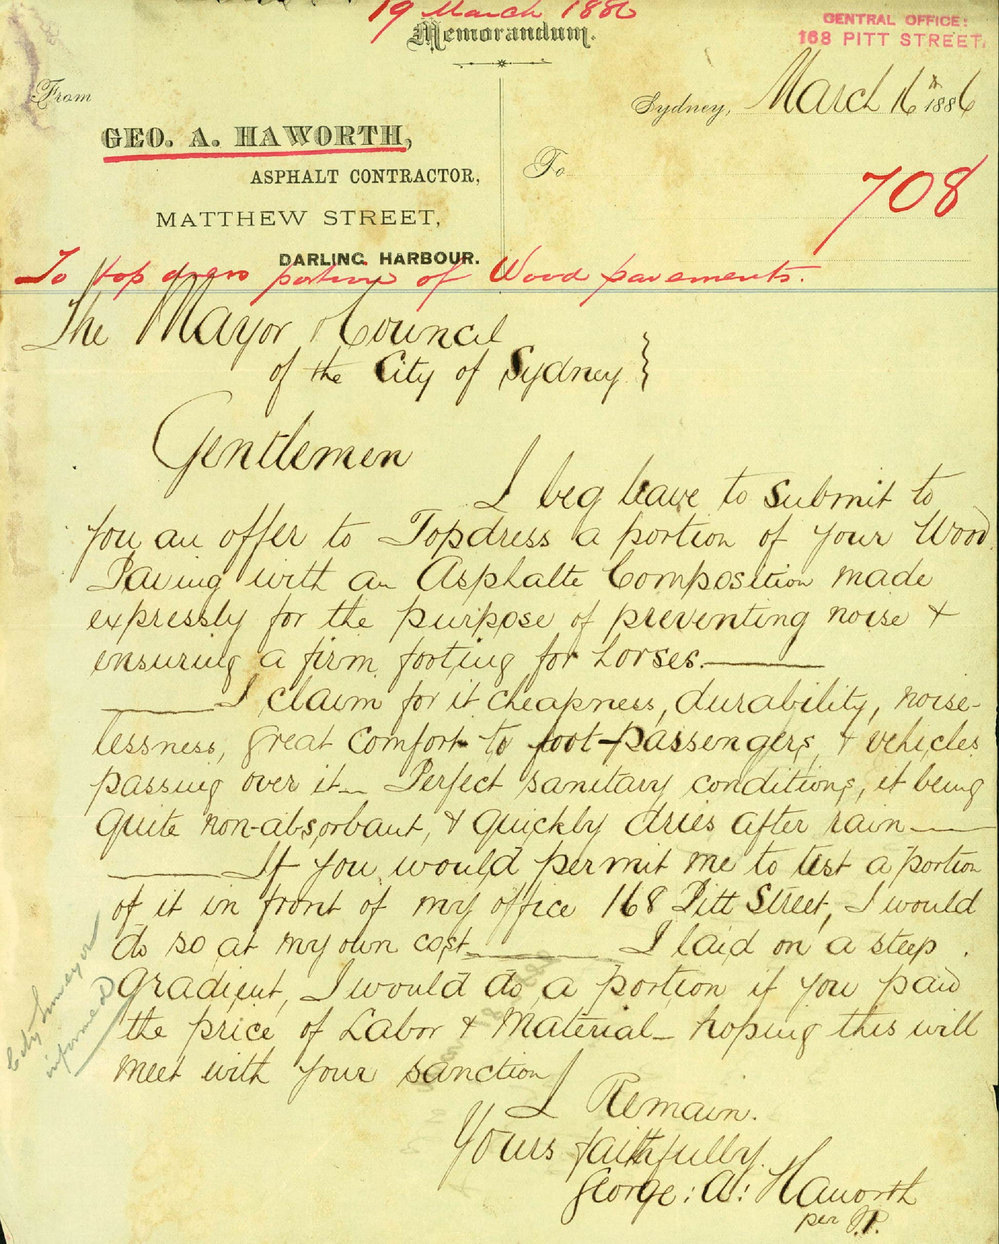 19 March 1886
Memorandum.
CENTRAL OFFICE:
168 PITT STREET.
From
Sydney, March 16th 1886
GEO. A. HAWORTH,
ASPHALT CONTRACTOR,
To
708
MATTHEW STREET,
DARLING HARBOUR.
To top dress portion of Wood pavements.
The Mayor & Council
of the City of Sydney }
Gentlemen
I beg leave to submit to
you an offer to Topdress a portion of your Wood
Paving with an Asphalte Composition made
expressly for the purpose of preventing noise &
ensuring a firm footing for horses.
I claim for it cheapness, durability, noise-
lessness, great comfort to foot-passengers, & vehicles
passing over it — Perfect sanitary conditions, it being
quite non-absorbant, & quickly dries after rain —
If you would permit me to test a portion
of it in front of my office 168 Pitt Street, I would
do so at my own cost. — I laid on a steep
gradient, I would do a portion if you paid
the price of Labor & Material — hoping this will
meet with your sanction
I Remain.
Yours faithfully
George: A: Haworth
per J.P.
City Surveyor
informed